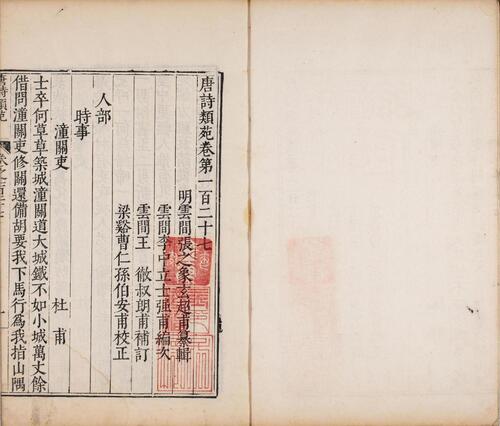 唐詩類苑卷第一百二十七
明雲間張之象玄超甫纂輯
雲間李中立士强甫編次
雲間王徹叔朗甫補訂
梁谿曹仁孫伯安甫校正
人部
時事
潼關吏 杜甫
士卒何草草築城潼關道大城鐵不如小城萬丈餘
借問潼關吏修關還備胡要我下馬行爲我指山隅
唐詩類苑 卷之一百二十七 一